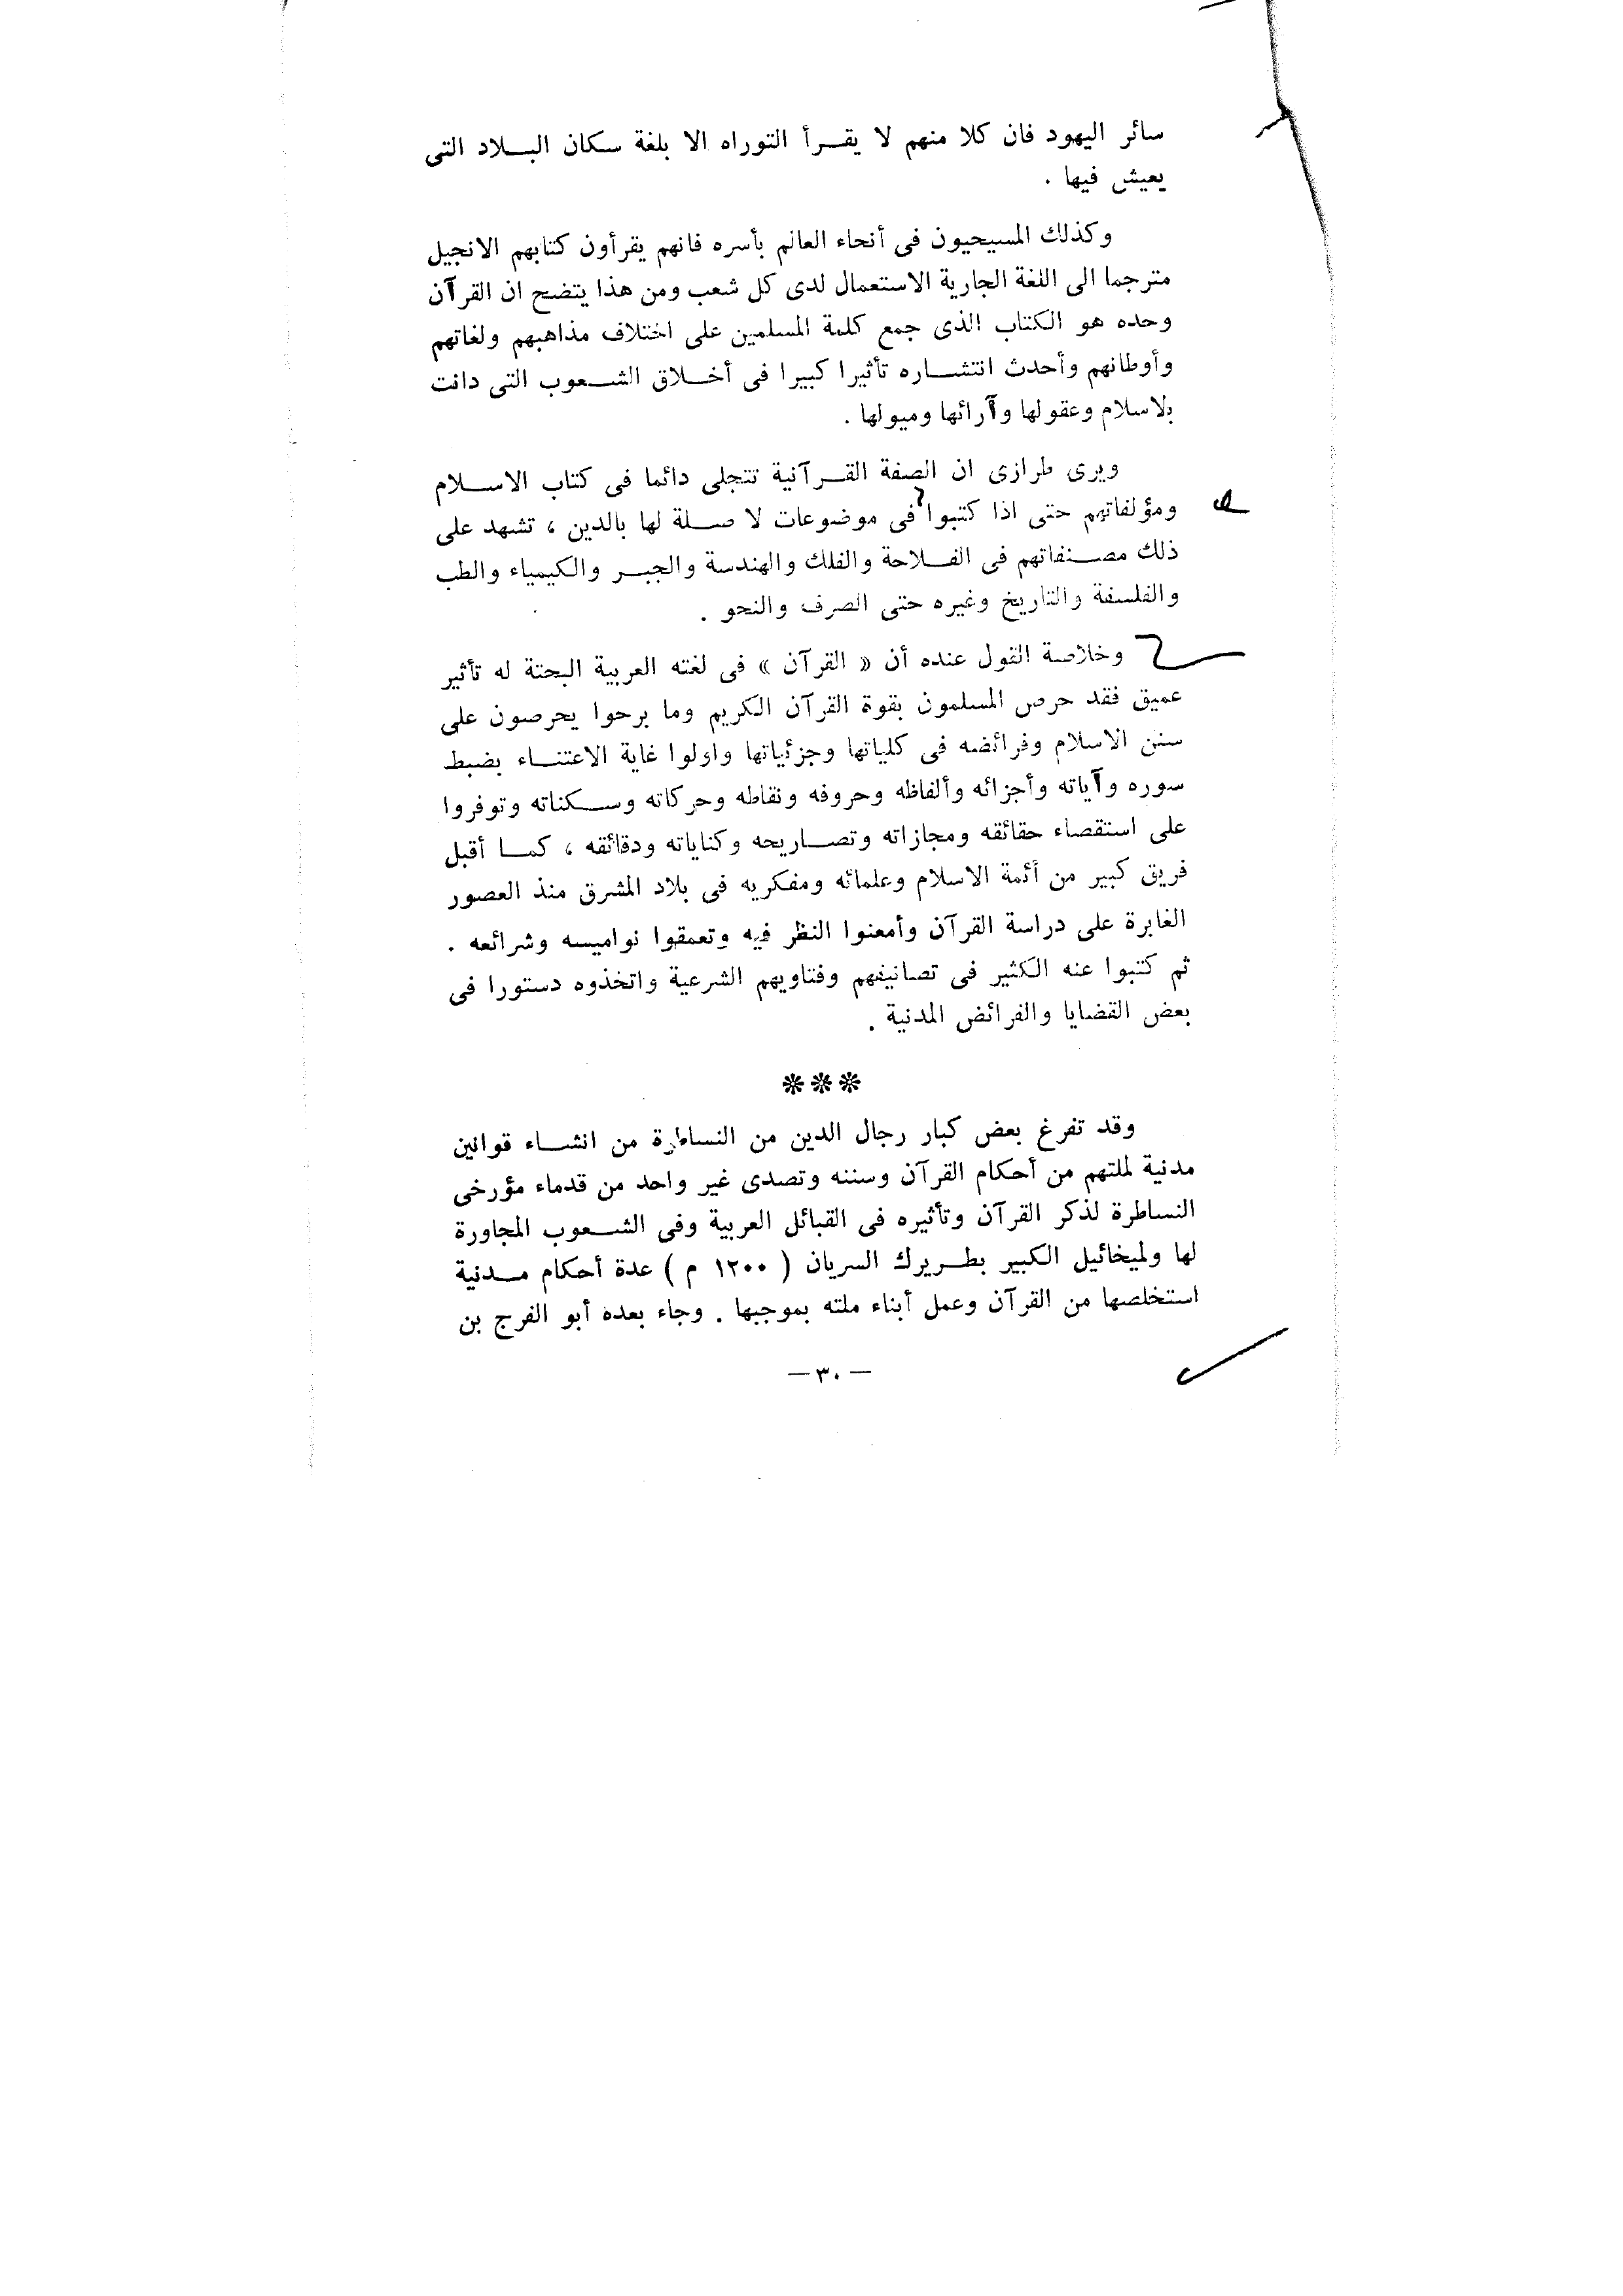 سائر اليهود فان كلا منهم لا يقرأ التوراه الا بلغة سكان البلاد التى
يعيش فيها .
وكذلك المسيحيون فى أنحاء العالم بأسره فانهم يقرأون كتابهم الانجيل
مترجما الى اللغة الجارية الاستعمال لدى كل شعب ومن هذا يتضح ان القرآن
وحده هو الكتاب الذى جمع كلمة المسلمين على اختلاف مذاهبهم ولغاتهم
وأوطانهم وأحدث انتشاره تأثيرا كبيرا فى أخلاق الشعوب التى دانت
بلاسلام وعقولها وآرائها وميولها .
ويرى طرازى ان الصفة القرآنية تتجلى دائما فى كتاب الاسلام
ومؤلفاتهم حتى اذا كتبوا فى موضوعات لا صلة لها بالدين ، تشهد على
ذلك مصنفاتهم فى الفلاحة والفلك والهندسة والجبر والكيمياء والطب
والفلسفة والتاريخ وغيره حتى الصرف والنحو .
وخلاصة القول عنده أن « القرآن » فى لغته العربية البحتة له تأثير
عميق فقد حرص المسلمون بقوة القرآن الكريم وما برحوا يحرصون على
سنن الاسلام وفرائضه فى كلياتها وجزئياتها واولوا غاية الاعتناء بضبط
سوره وآياته وأجزائه وألفاظه وحروفه ونقاطه وحركاته وسكناته وتوفروا
على استقصاء حقائقه ومجازاته وتصاريحه وكناياته ودقائقه ، كما أقبل
فريق كبير من أئمة الاسلام وعلمائه ومفكريه فى بلاد المشرق منذ العصور
الغابرة على دراسة القرآن وأمعنوا النظر فيه وتعمقوا نواميسه وشرائعه .
ثم كتبوا عنه الكثير فى تصانيفهم وفتاويهم الشرعية واتخذوه دستورا فى
بعض القضايا والفرائض المدنية .
***
وقد تفرغ بعض كبار رجال الدين من النساطرة من انشاء قوانين
مدنية لملتهم من أحكام القرآن وسننه وتصدى غير واحد من قدماء مؤرخى
النساطرة لذكر القرآن وتأثيره فى القبائل العربية وفى الشعوب المجاورة
لها ولميخائيل الكبير بطريرك السريان ( ١٢٠٠ م ) عدة أحكام مدنية
استخلصها من القرآن وعمل أبناء ملته بموجبها . وجاء بعده أبو الفرج بن
— ٣٠ —